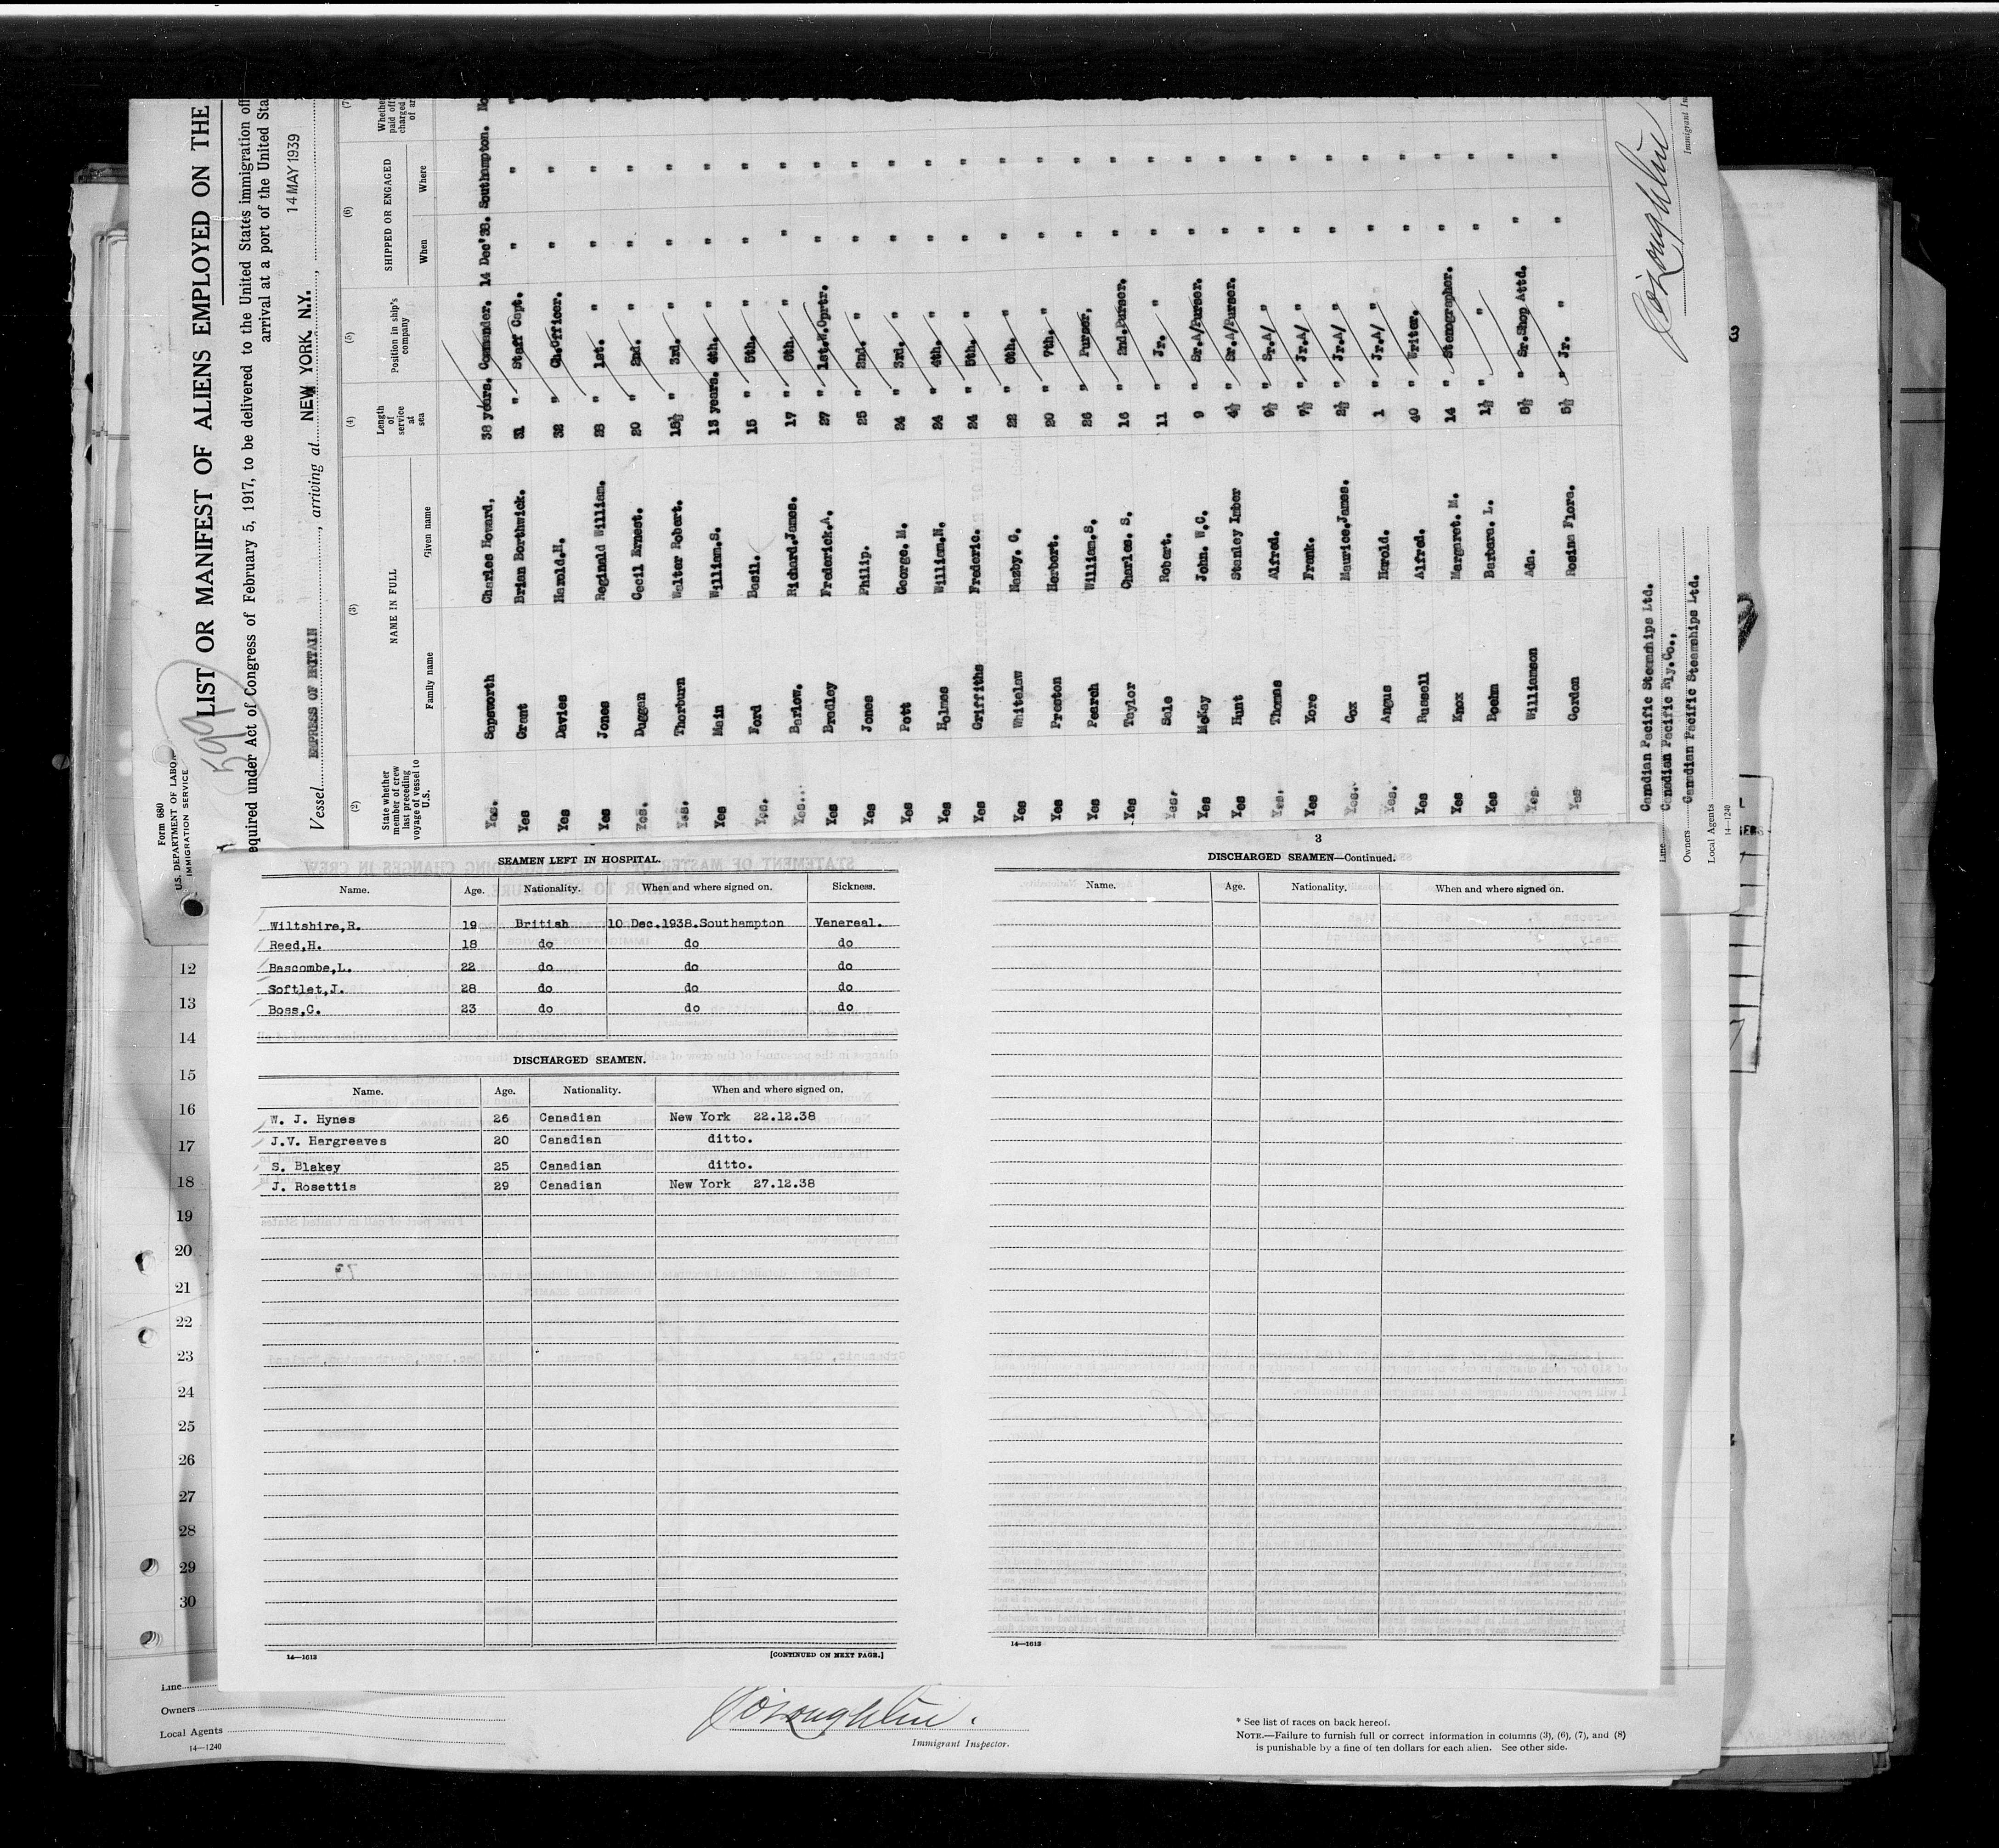 Form 680
U.S. DEPARTMENT OF LABOR
IMMIGRATION SERVICE
599
LIST OR MANIFEST OF ALIENS EMPLOYED ON THE
equired under Act of Congress of February 5, 1917, to be delivered to the United States immigration off
arrival at a port of the United Sta
Vessel EMPRESS OF BRITAIN, arriving at NEW YORK, N.Y., 14 MAY 1939
(2) (3) (4) (5) (6) (7)
State whether member of crew last preceding voyage of vessel to U.S.
NAME IN FULL
Family name Given name
Length of service at sea
Position in ship's company
SHIPPED OR ENGAGED
When Where
Whethe paid off charged of ar
Yes. Sapsworth Charles Howard. 38 years. Commander. 14 Dec'38. Southampton. No
Yes Grant Brian Borthwick. 31 " Staff Capt. " " "
Yes Davies Harold.H. 32 " Ch.Officer. " " "
Yes Jones Reginald William. 23 " 1st. " " " "
Yes. Duggan Cecil Ernest. 20 " 2nd. " " " "
Yes. Thorburn Walter Robert. 18½ " 3rd. " " " "
Yes Main William.S. 13 years. 4th. " " " "
Yes. Ford Basil. 15 " 5th. " " " "
Yes... Barlow. Richard.James. 17 " 6th. " " " "
Yes Bradley Frederick.A. 27 " 1st.W.Oprtr. " " "
Yes Jones Philip. 25 " 2nd. " " " "
Yes Pott George. M. 24 " 3rd. " " " "
Yes Holmes William.H. 24 " 4th. " " " "
Yes Griffiths Frederic. 24 " 5th. " " " "
Yes Whitelaw Maxby. C. 22 " 6th. " " " "
Yes Preston Herbert. 20 " 7th. " " " "
Yes Pearch William.S. 26 " Purser. " " "
Yes Taylor Charles. S. 16 " 2nd.Purser. " " "
Yes. Sale Robert. 11 " Jr. " " " "
Yes McKay John. W.C. 9 " Sr.A/Purser. " " "
Yes Hunt Stanley Imber 4½ " Sr.A/Purser. " " "
Yes. Thomas Alfred. 9½ " Sr.A/ " " " "
Yes Yore Frank. 7½ " Jr.A/ " " " "
Yes. Cox Maurice.James. 2½ " Jr.A/ " " " "
Yes. Angus Harold. 1 " Jr.A/ " " " "
Yes Russell Alfred. 40 " Writer. " " "
Yes Knox Margaret. M. 14 " Stenographer. " " "
Yes Boehm Barbara. L. 1½ " " " " "
Yes. Williamson Ada. 8½ " Sr.Shop Attd. " "
Yes Gordon Rosina Flora. 5½ " Jr. " " "
Canadian Pacific Steamships Ltd.
Line Canadian Pacific Rly.Co.,
Owners Canadian Pacific Steamships Ltd.
Local Agents
14—1240
O'Loughlin
Immigrant In
SEAMEN LEFT IN HOSPITAL.
Name. Age. Nationality. When and where signed on. Sickness.
Wiltshire,R. 19 British 10 Dec.1938.Southampton Venereal.
Reed,H. 18 do do do
Bascombe,L. 22 do do do
Softlet,J. 28 do do do
Boss,C. 23 do do do
DISCHARGED SEAMEN.
Name. Age. Nationality. When and where signed on.
W. J. Hynes 26 Canadian New York 22.12.38
J.V. Hargreaves 20 Canadian ditto.
S. Blakey 25 Canadian ditto.
J. Rosettis 29 Canadian New York 27.12.38
14—1613 [CONTINUED ON NEXT PAGE.]
3
DISCHARGED SEAMEN—Continued.
Name. Age. Nationality. When and where signed on.
14—1613
12
13
14
15
16
17
18
19
20
21
22
23
24
25
26
27
28
29
30
Line
Owners
Local Agents
14—1240
O'Loughlin.
Immigrant Inspector.
* See list of races on back hereof.
NOTE.—Failure to furnish full or correct information in columns (3), (6), (7), and (8)
is punishable by a fine of ten dollars for each alien. See other side.